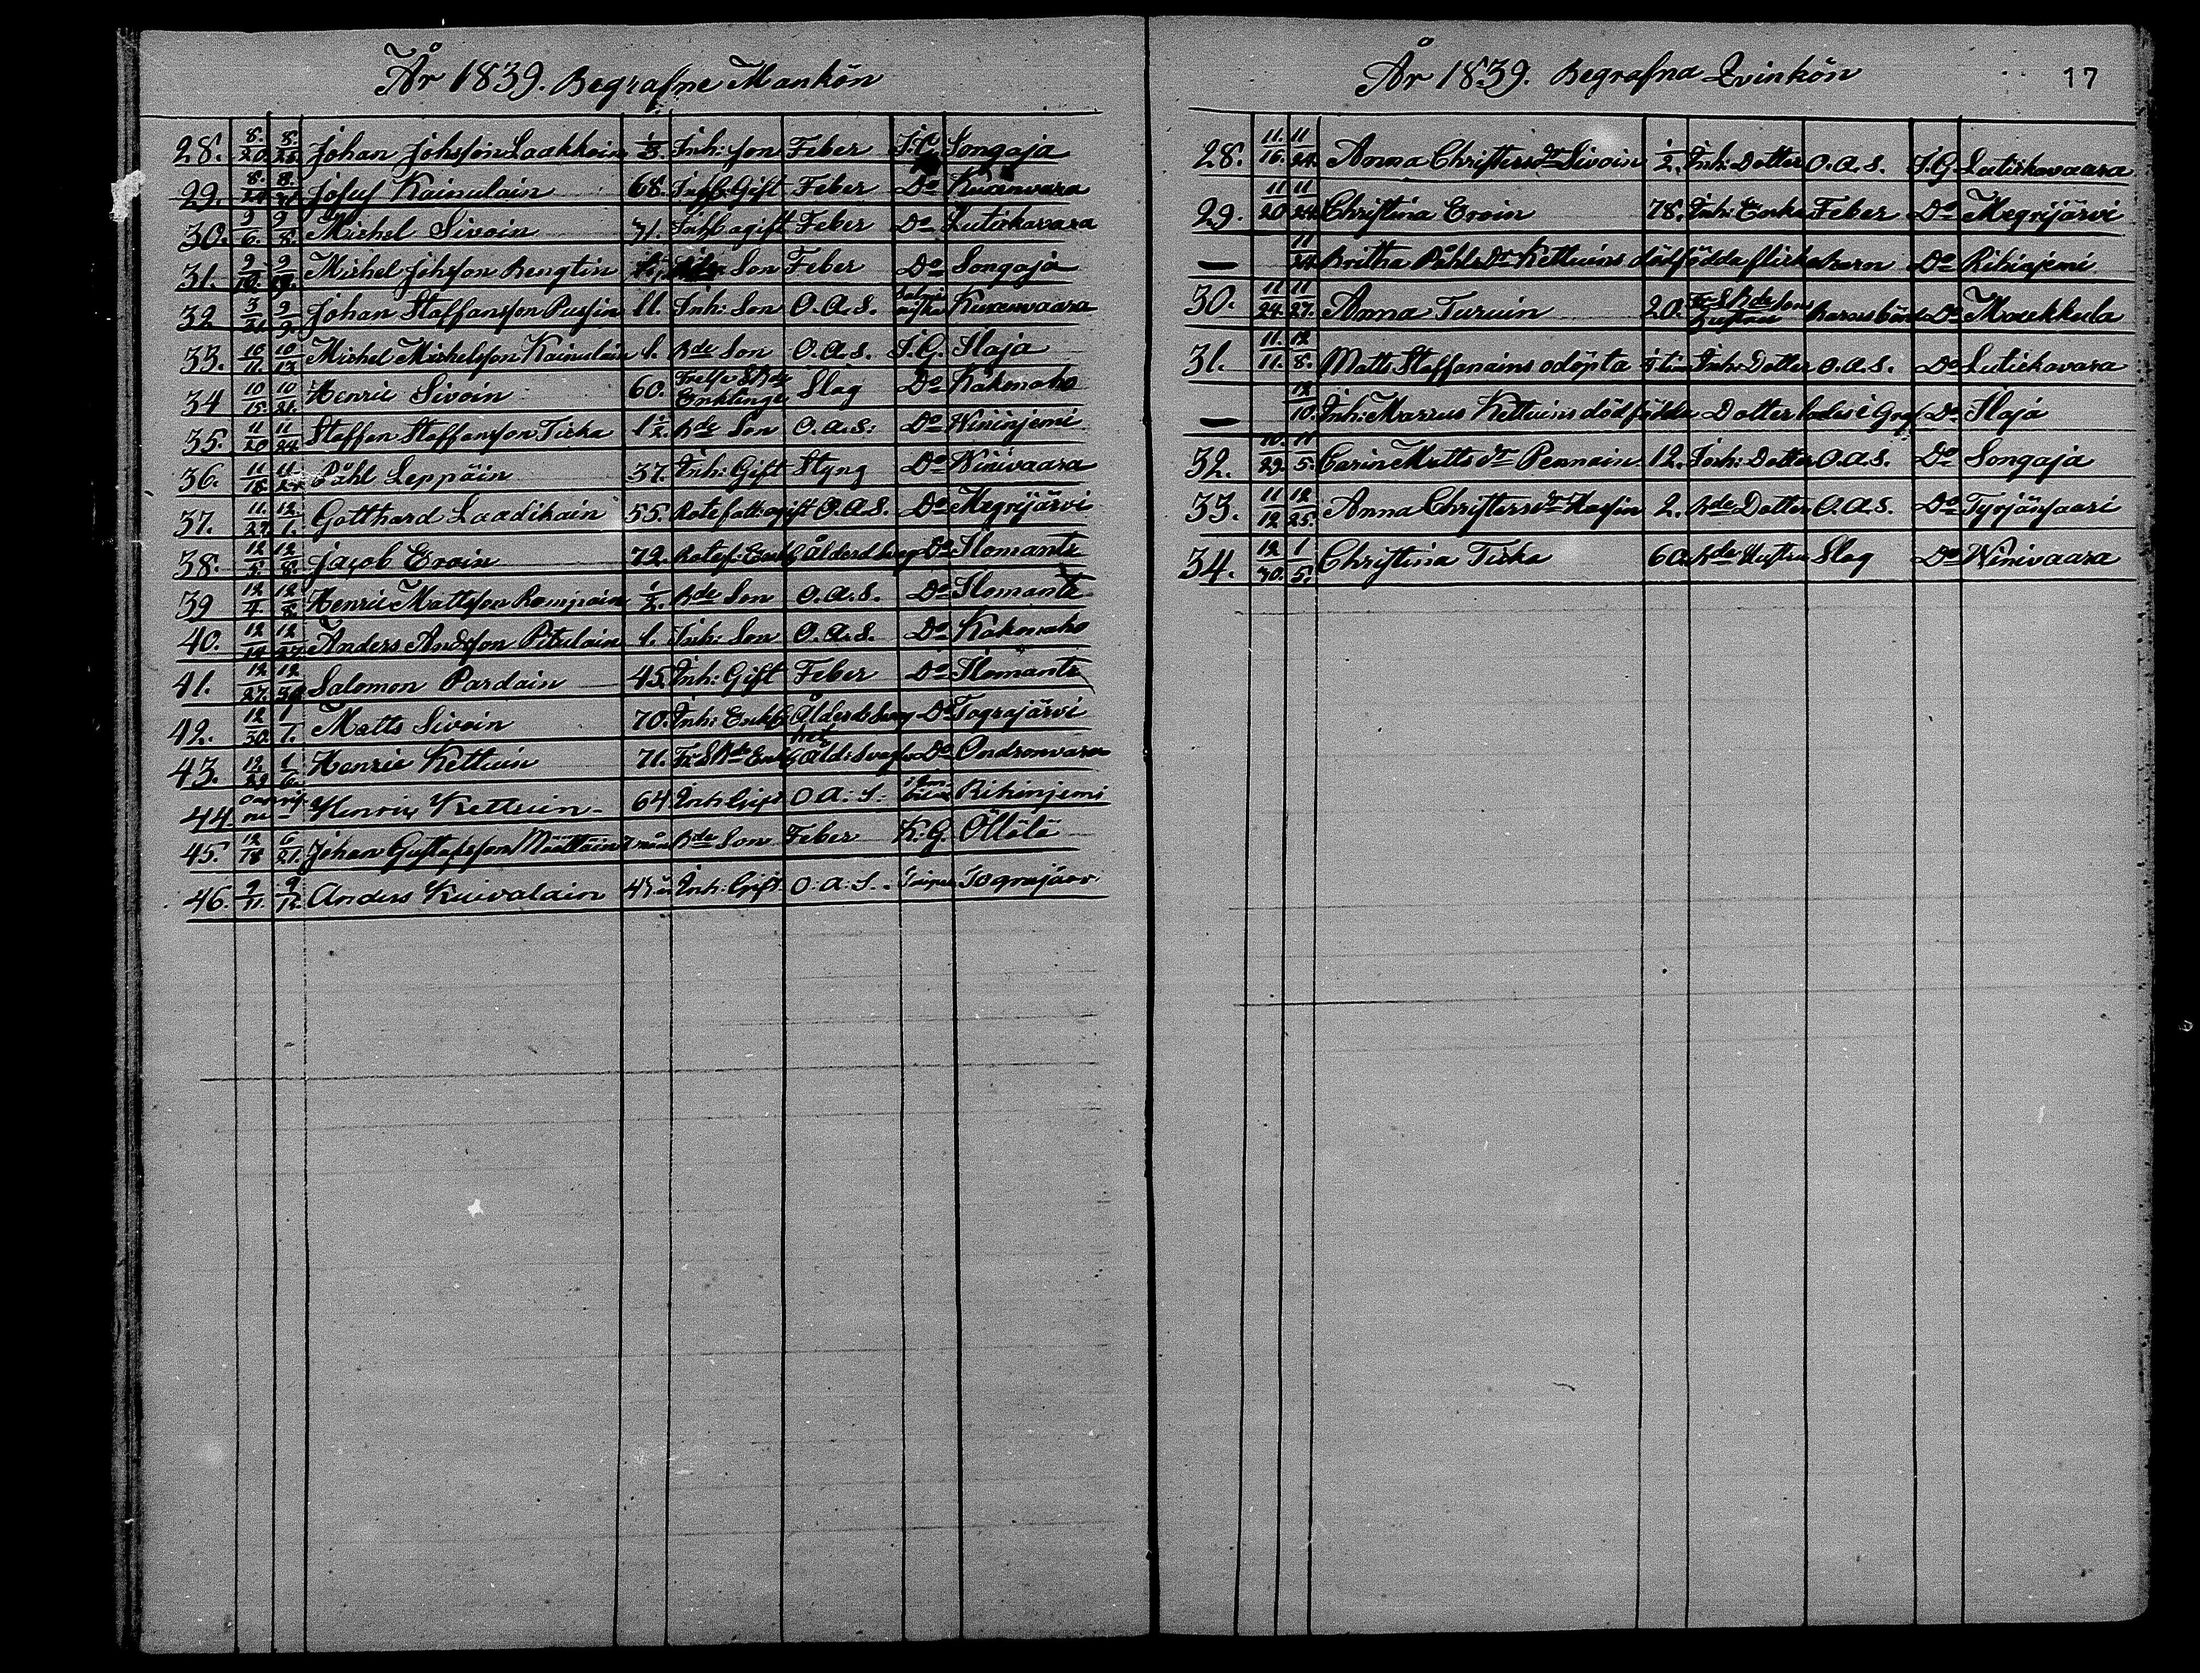 År 1839. Begrafne Mankön
28. 8/20. 8/25. Johan Johsson Laakkoin 1/3. Inh: son Feber I.G. Songaja
29. 8/24 8/31 Josef Kainulain 68. Inh: Gift Feber Do Kuxenvara
30. 9/6. 9/8. Michel Sivoin 71. Inh: ogift Feber Do Lutickavara
31. 9/10. 9/19. Michel Johsson Bengtin Son Feber Do Songaja
32 3/31 9/9. Johan Staffansson Pussin 11. Inh: Son O.A.S. Kuxenvaara
33. 10/11. 10/13. Michel Michelsson Kainulain 1. Bde Son O.A.S. I.G. Ilaja
34 10/15. 10/21. Henric Sivoin 60. Frelse Bde Enklinge Slag Do Kåkonaho
35. 11/20 11/24. Staffan Staffansson Tiska 1 1/2. Bde Son O.A.S: Do Wiiinjemi
36. 11/18 11/24 Påhl Leppäin 37. Inh: Gift Styng Do Winivaara
37. 11/27. 12/1. Gotthard Laadikain 55. Rotefatt: ogift O.A.S. Do Megrijärvi
38. 12/5. 12/8. Jacob Eroin 72. Rotef: Enkl Ålderd Do Ilomants
39 12/4. 12/8 Henric Mattsson Rompain 1/2. Bde Son O.A.S. Do Ilomants
40. 12/12 12/27 Anders Andsson Pitulain 1. Inh: Son O.A.S. Do Kåkonaho
41. 12/27. 12/30 Salomon Pardain 45. Inh: Gift Feber Do Ilomants
42. 12/30. 1/1. Matts Sivoin 70. Inh: Enkl Ålderds Swag het Do Tograjärvi
43. 12/29 1/6 Henric Kettuin 71. Fr S Bde Enkl Åld: Do Ondronvara
44 Henric Kettuin 64 Inh: Gift O.A.S. Rihinjemi
45. 12/18 6/21. Johan Gustafsson Mustain Bde Son Feber K.G. Öllölö
46. 9/11. 9/12. Anders Kuivalain 43 Inh: Gift O.A.S. Tograjärv
År 1839. Begrafna Qvinkön 17
28. 11/16. 11/24 Anna Christersdr Sivoin 1/2. Inh: Dotter O.A.S. I.G Lutickavaara
29. 11/20 11/24 Christina Eroin 78. Inh: Enka Feber Do Megrijärvi
— 11/24 Britha Påhlsdr Kettuins dödfödda flickebarn Do Rihiajemi
30. 11/24. 11/27. Anna Turuin 20. Fr S Bde sons hustru Barnsbörd Do Muekkula
31. 11/11. 12/8. Matts Staffanains odöpta Inh: Dotter O.A.S. Do Lutickavara
— 12/10. Inh: Marcus Kettuins dödfödda Dotter lades i Graf Do Ilaja
32. 10/29. 11/5. Carin Matts dr Pennain 12. Inh: Dotter O.A.S. Do Songaja
33. 11/12 12/25. Anna Christersdr Hassin 2. Bde Dotter O.A.S. Do Tyrjänsaari
34. 12/30. 1/5. Christina Tiska 60. Bde Hustru Slag Do Winivaara